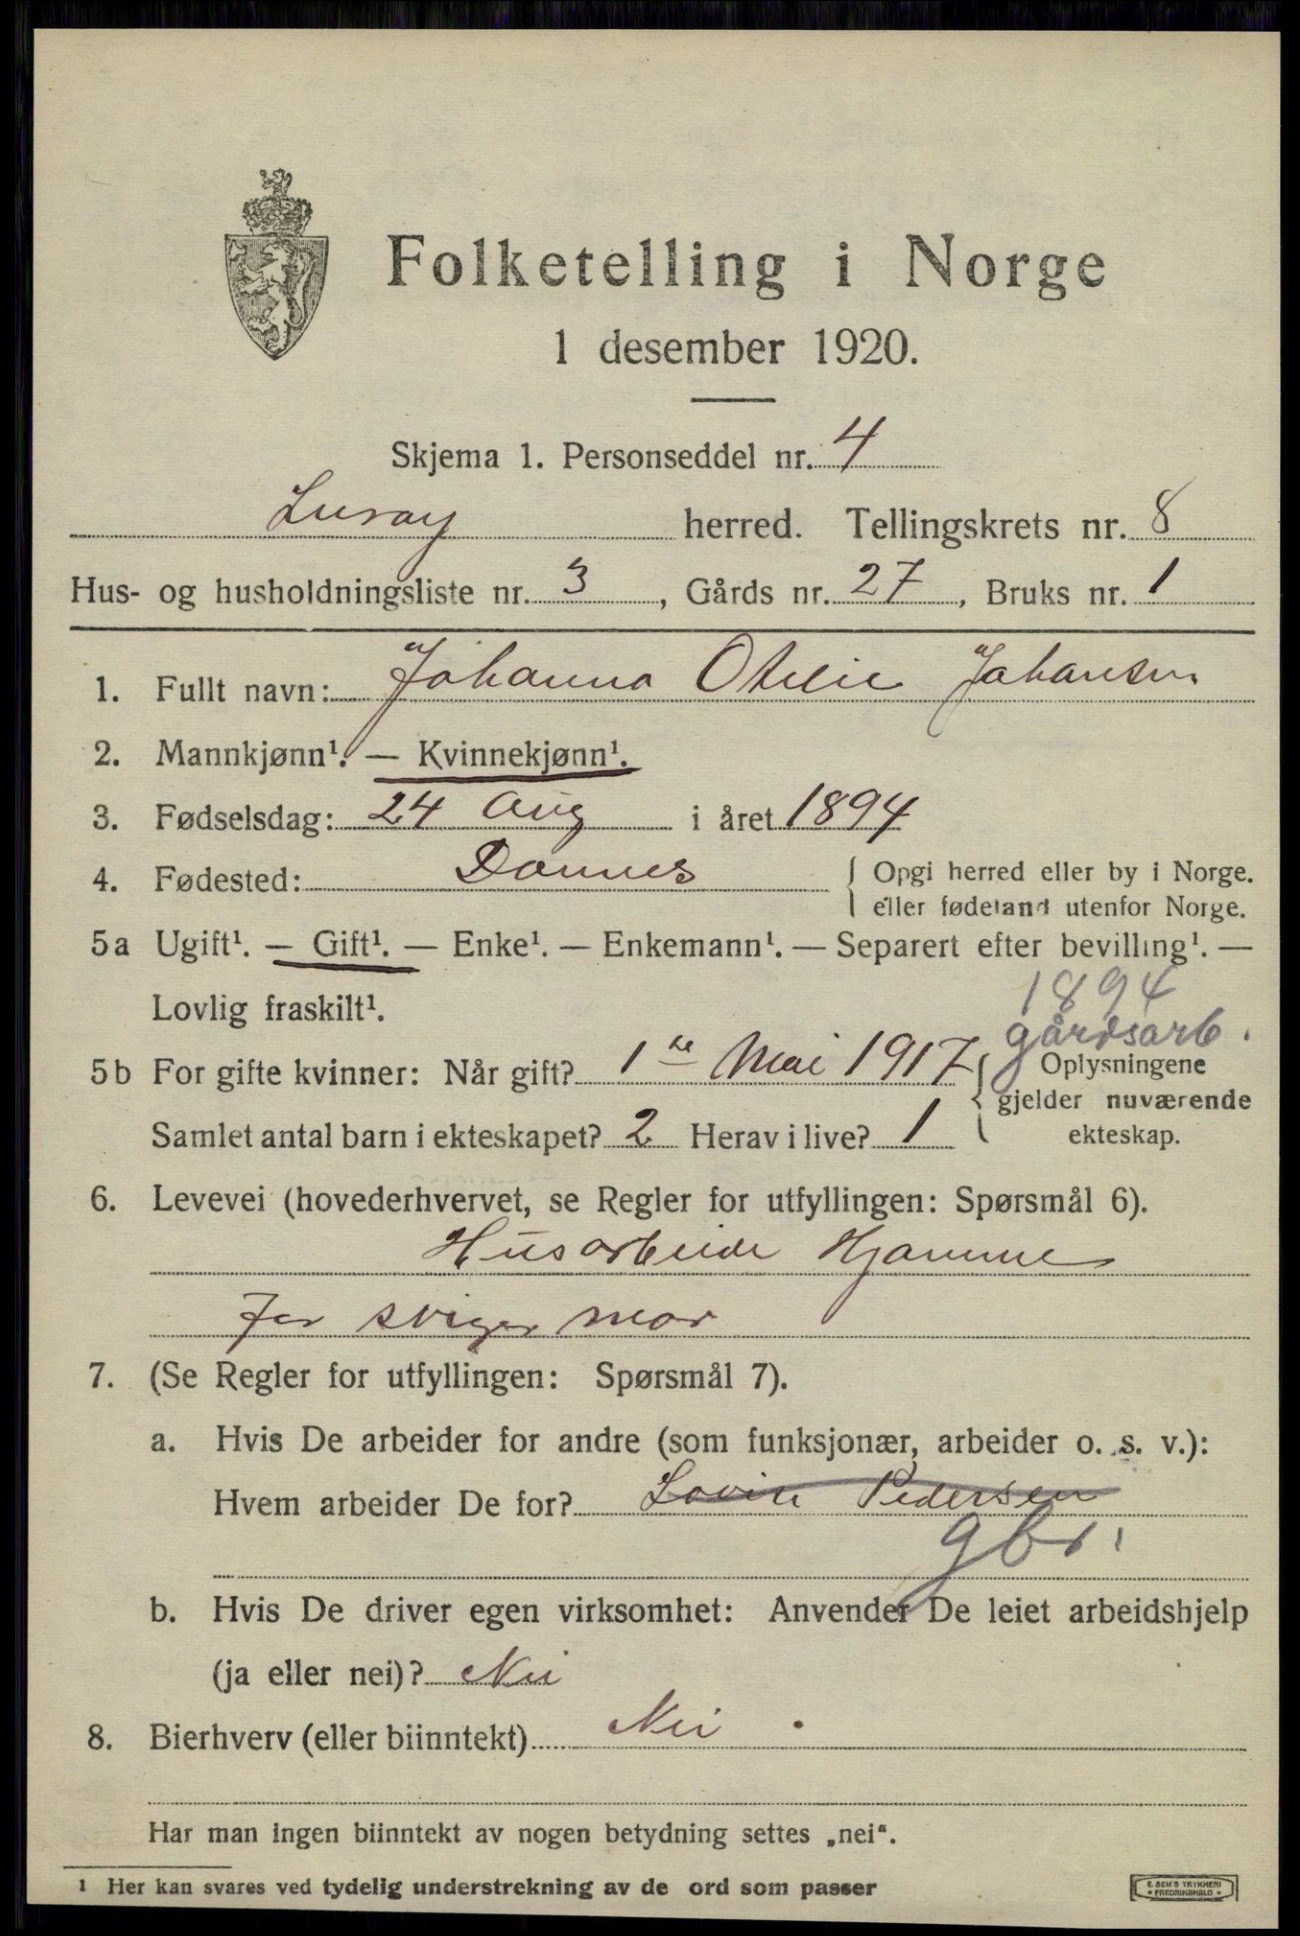 Folketelling i Norge
1 desember 1920.
Skjema 1. Personseddel nr. 4
Lurøy herred. Tellingskrets nr. 8
Hus- og husholdningsliste nr. 3, Gårds nr. 27, Bruks nr. 1
1. Fullt navn: Johanna Otelie Johansen
2. Mannkjønn¹. — Kvinnekjønn¹.
3. Fødselsdag: 24 Aug i året 1894
4. Fødested: Dønnes { Opgi herred eller by i Norge.
eller fødeland utenfor Norge.
5a Ugift¹. — Gift¹. — Enke¹. — Enkemann¹. — Separert efter bevilling¹. —
Lovlig fraskilt¹.
1894
gårdsarb.
5b For gifte kvinner: Når gift? 1ste Mai 1917 { Oplysningene
gjelder nuværende
Samlet antal barn i ekteskapet? 2 Herav i live? 1 ekteskap.
6. Levevei (hovederhvervet, se Regler for utfyllingen: Spørsmål 6).
Husarbeide Hjemme
for sviger mor
7. (Se Regler for utfyllingen: Spørsmål 7).
a. Hvis De arbeider for andre (som funksjonær, arbeider o. s. v.):
Hvem arbeider De for? Lovise Pedersen
gbr.
b. Hvis De driver egen virksomhet: Anvender De leiet arbeidshjelp
(ja eller nei)? Nei
8. Bierhverv (eller biinntekt) Nei.
Har man ingen biinntekt av nogen betydning settes „nei“.
¹ Her kan svares ved tydelig understrekning av de ord som passer
E. SEM'S TRYKKERI
FREDRIKSHALD